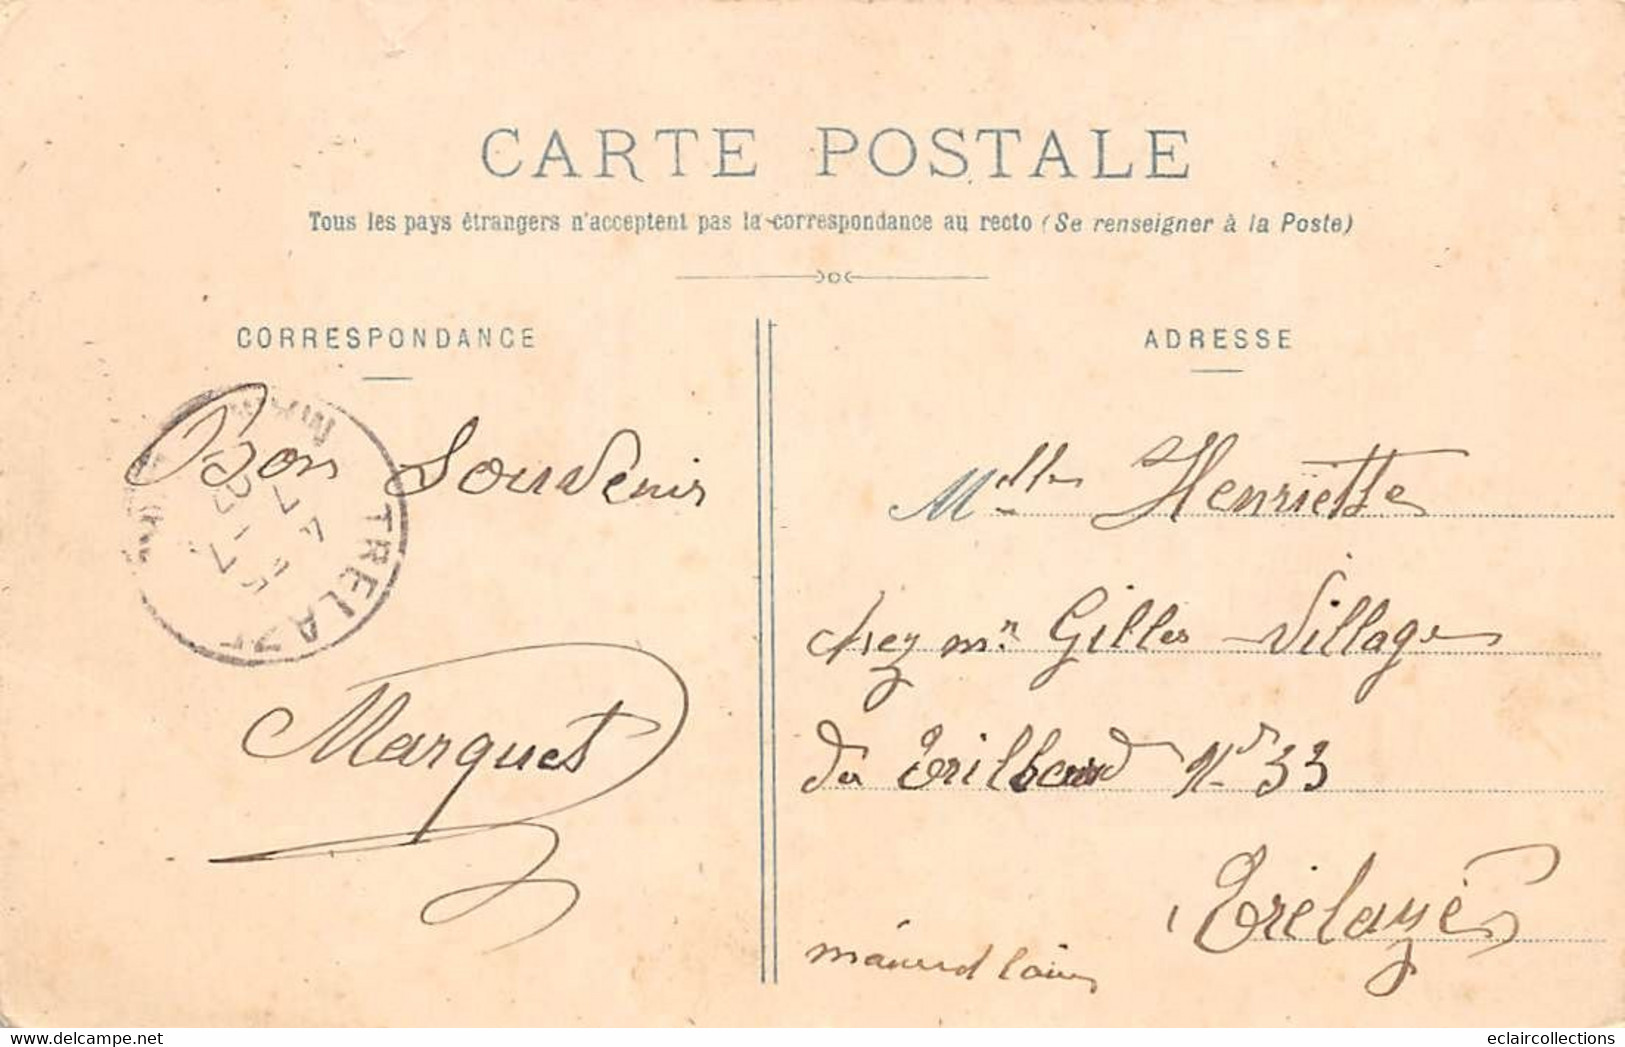 CARTE POSTALE
Tous les pays étrangers n'acceptent pas la correspondance au recto (Se renseigner à la Poste)
CORRESPONDANCE
ADRESSE
TRELAZE
Bon Souvenir
Marquet
Mlle Henriette
chez mr Gilles Village
du N° 33
Trélazé
eclaircollections